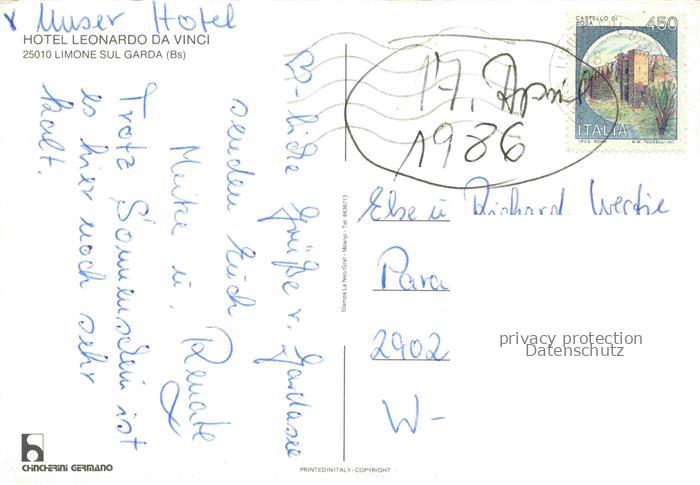 x Unser Hotel
HOTEL LEONARDO DA VINCI
25010 LIMONE SUL GARDA (Bs)
liebe Grüße v. Gardasee
senden Euch
Meike u. Renate
Trotz Sonnenschein ist
es hier noch sehr
kalt.
CHINCHERINI GERMANO
Stampa La Neo/Graf - Milano - Tel. 8436713
PRINTED IN ITALY - COPYRIGHT
CASTELLO DI
BOSA
450
ITALIA
I.P.Z.S. ROMA
17. April
1986
Else u. Richard
Para
2902
W-
privacy protection
Datenschutz